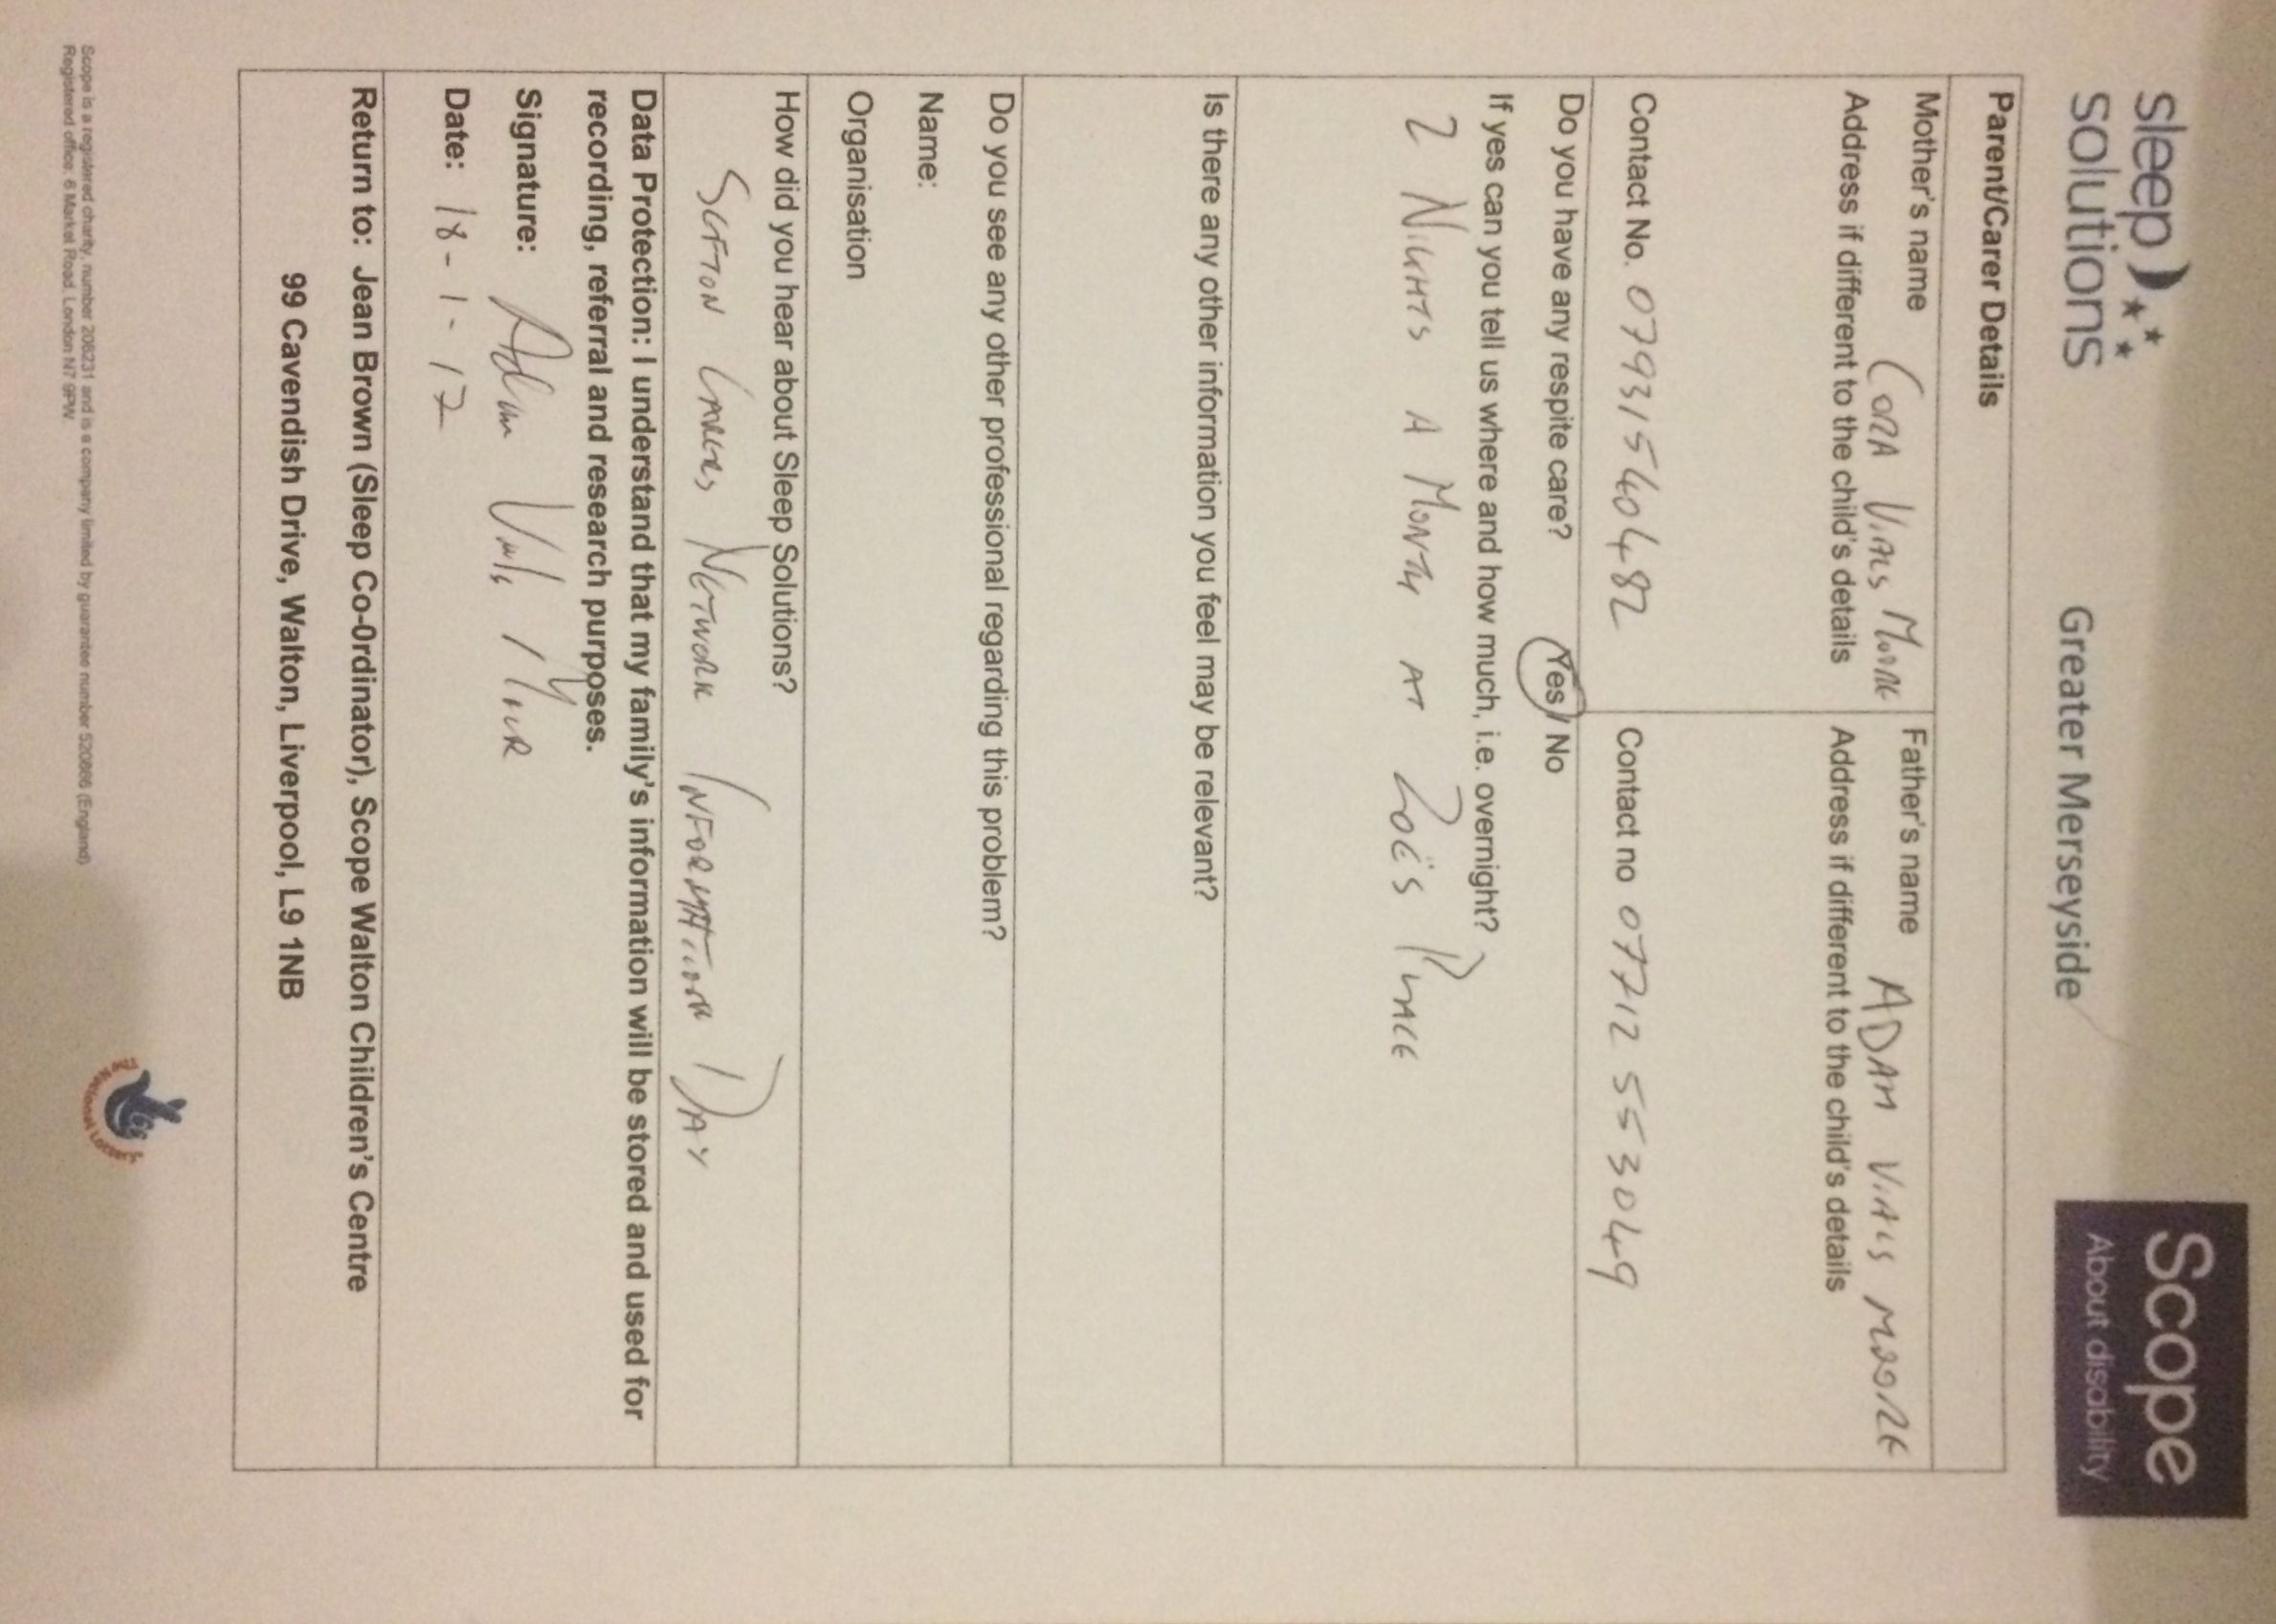 sleep
solutions
Greater Merseyside
Scope
About disability
Parent/Carer Details
Mother's name CORA VIALS MOORE
Address if different to the child's details
Contact No. 07931540482
Father's name ADAM VIALS MOORE
Address if different to the child's details
Contact no 07712 553049
Do you have any respite care? Yes / No
If yes can you tell us where and how much, i.e. overnight?
2 NIGHTS A MONTH AT ZOË'S PLACE
Is there any other information you feel may be relevant?
Do you see any other professional regarding this problem?
Name:
Organisation
How did you hear about Sleep Solutions?
SEFTON CARERS NETWORK INFORMATION DAY
Data Protection: I understand that my family's information will be stored and used for
recording, referral and research purposes.
Signature: Adam Vials Moor
Date: 18-1-17
Return to: Jean Brown (Sleep Co-0rdinator), Scope Walton Children's Centre
99 Cavendish Drive, Walton, Liverpool, L9 1NB
Scope is a registered charity, number 208231 and is a company limited by guarantee number 520866 (England)
Registered office: 6 Market Road, London N7 9PW